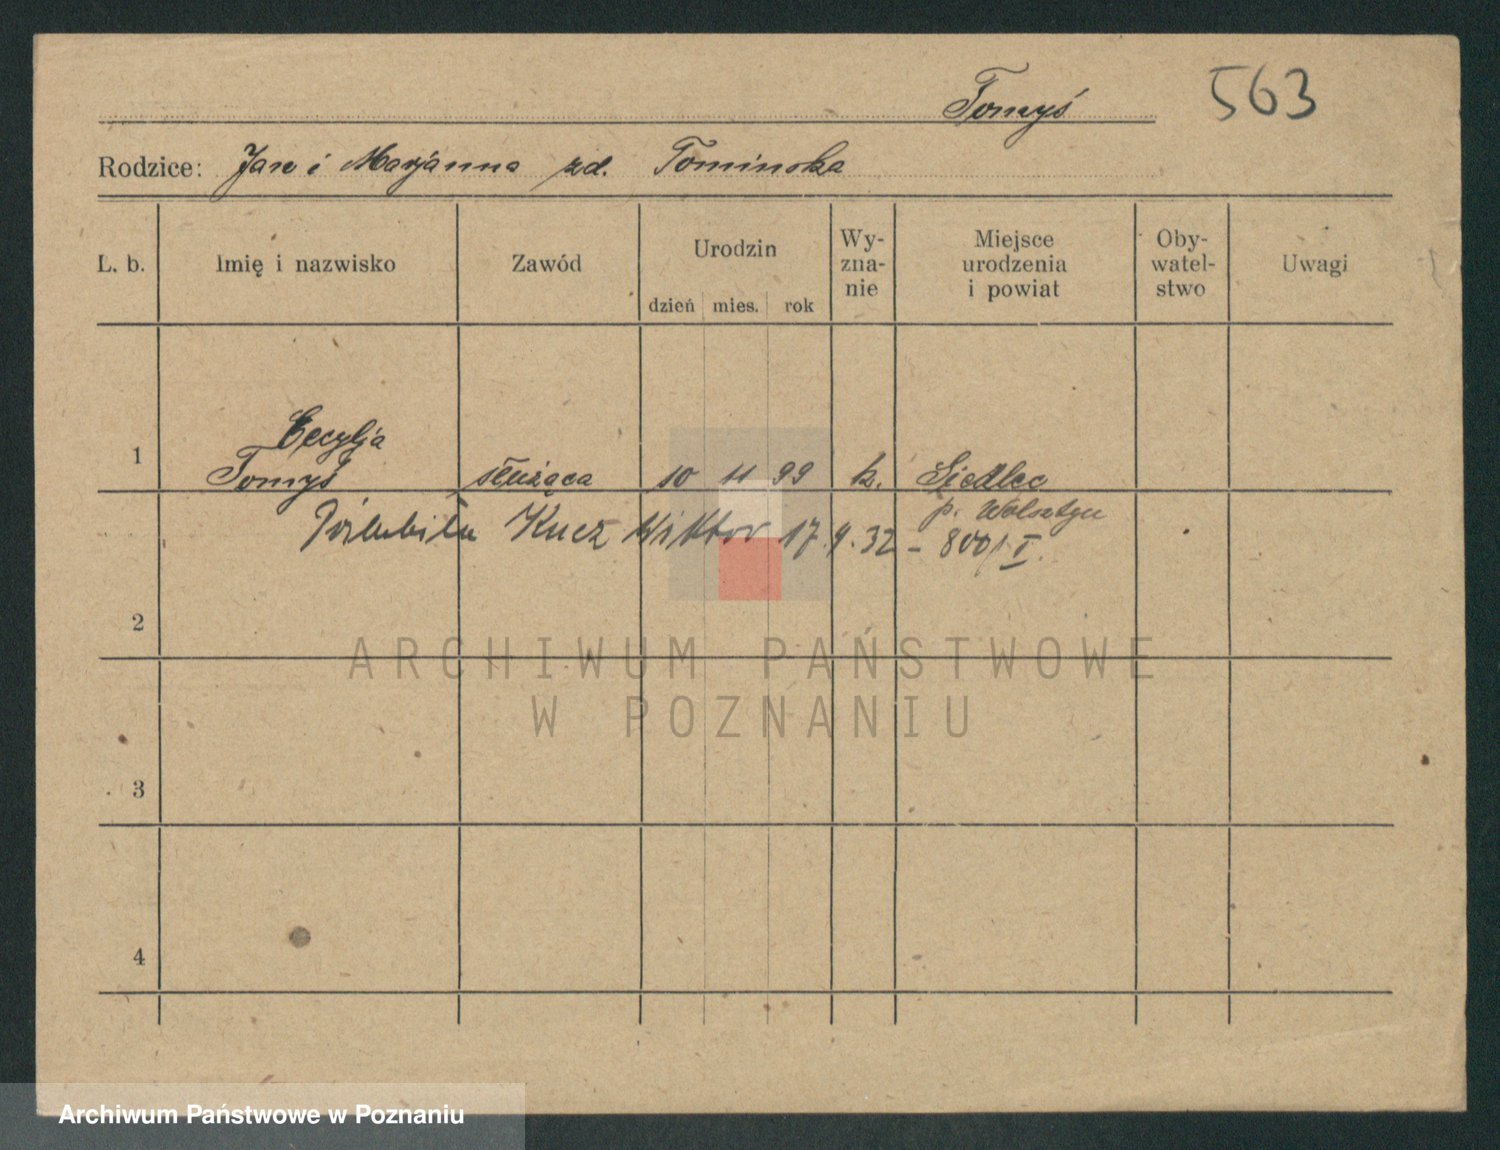 Tomyś 563
Rodzice: Jan i Marjanna zd. Tominska
L. b.
Imię i nazwisko
Zawód
Urodzin
dzień mies. rok
Wy-
zna-
nie
Miejsce
urodzenia
i powiat
Oby-
watel-
stwo
Uwagi
1
Cecylja
Tomyś służąca 10 11 99 k. Siedlec
p. Wolsztyn
Kucz Wiktor 17.9.32 – 800/I.
2
3
4
ARCHIWUM PAŃSTWOWE
W POZNANIU
Archiwum Państwowe w Poznaniu